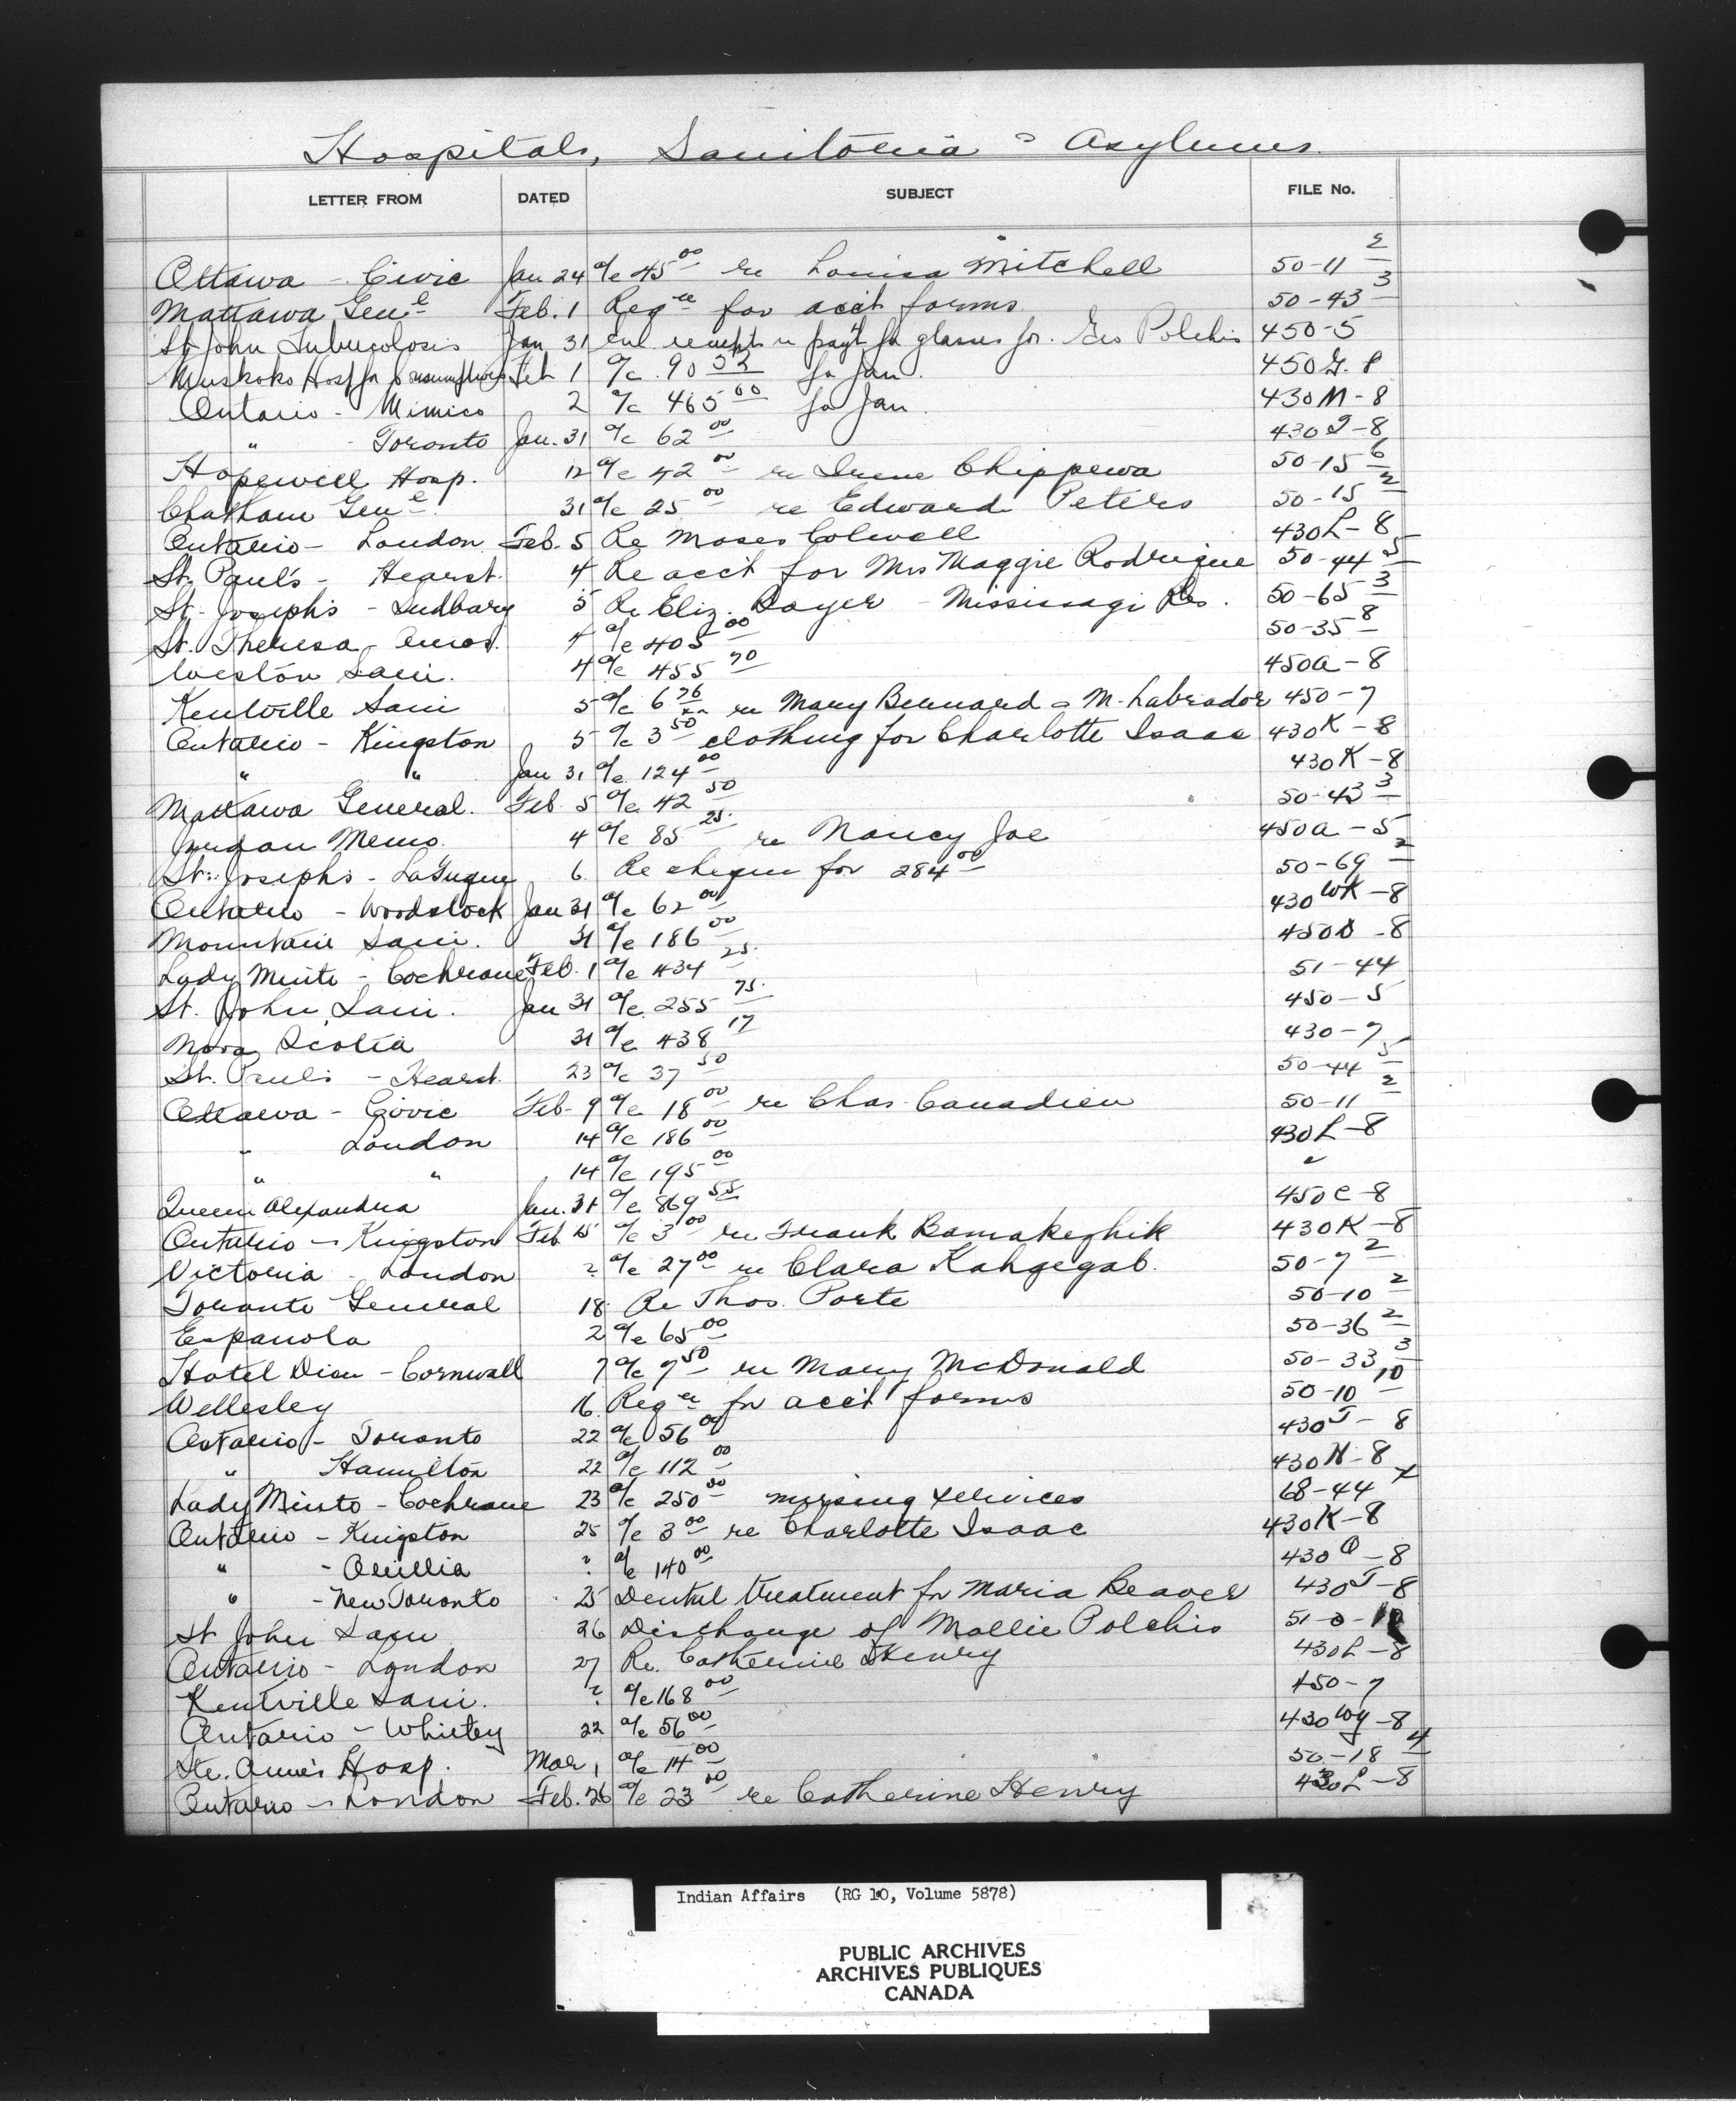 Hospitals, Sanitoria & Asylums.
LETTER FROM DATED SUBJECT FILE No.
Ottawa - Civic Jan 24 a/c 45 00 re Louisa Mitchell 50-11 2
Mattawa Genl Feb. 1 Reqn for acc't forms 50-43 3
St John Tuberculosis Jan 31 encl receipt re pay't for glasses for Geo Polchis 450-5
Muskoka Hosp for Consumptives Feb 1 a/c 90 52 for Jan. 450G-8
Ontario - Mimico 2 a/c 465 00 for Jan. 430M-8
" - Toronto Jan. 31 a/c 62 00 430T-8
Hopewell Hosp. 12 a/c 42 00 re Irene Chippewa 50-15 6
Chatham Genl 31 a/c 25 00 re Edward Peters 50-15 2
Ontario - London Feb. 5 Re Moses Colwell 430L-8
St. Paul's - Hearst. 4 Re acc't for Mrs Maggie Rodrigue 50-44 5
St. Joseph's - Sudbury 5 Re Eliz. Boyer - Mississagi Res. 50-65 3
St. Theresa - Amos. 4 a/c 405 00 50-35 8
Weston Sani. 4 a/c 455 70 450A-8
Kentville Sani 5 a/c 6 76 re Mary Bernard & M. Labrador 450-7
Ontario - Kingston 5 a/c 3 50 clothing for Charlotte Isaac 430K-8
" " Jan 31 a/c 124 00 430K-8
Mattawa General. Feb. 5 a/c 42 50 50-43 3
Jordan Memo. 4 a/c 85 25 re Nancy Joe 450A-5
St. Joseph's - LaTuque 6. Re cheque for 284 00 50-69 2
Ontario - Woodstock Jan 31 a/c 62 00 430WK-8
Mountain Sani. 31 a/c 186 00 450D-8
Lady Minto - Cochrane Feb. 1 a/c 434 25 51-44
St. John Sani. Jan 31 a/c 255 75 450-5
Nova Scotia 31 a/c 438 17 430-7
St. Paul's - Hearst. 23 a/c 37 50 50-44 5
Ottawa - Civic Feb. 9 a/c 18 00 re Chas. Canadien 50-11 2
" London 14 a/c 186 00 430L-8
" " 14 a/c 195 00 "
Queen Alexandra Jan. 31 a/c 869 55 450C-8
Ontario - Kingston Feb 15 a/c 3 00 re Frank Bamakezhik 430K-8
Victoria - London ? a/c 27 00 re Clara Kahgegab. 50-7 2
Toronto General 18 Re Thos. Porte 50-10 2
Espanola 2 a/c 65 00 50-36 2
Hotel Dieu - Cornwall 7 a/c 7 50 re Mary McDonald 50-33 3
Wellesley 16 Reqn for acc't forms 50-10 10
Ontario - Toronto 22 a/c 56 00 430T-8
" Hamilton 22 a/c 112 00 430H-8
Lady Minto - Cochrane 23 a/c 250 00 nursing services 68-44 x
Ontario - Kingston 25 a/c 3 00 re Charlotte Isaac 430K-8
" - Orillia ? a/c 140 00 430 O-8
" - New Toronto 25 Dental treatment for Maria Beaver 430T-8
St John Sani 26 Discharge of Mollie Polchis 51-
Ontario - London 27 Re. Catherine Henry 430L-8
Kentville Sani. ? a/c 168 00 450-7
Ontario - Whitby 22 a/c 56 00 430Wy-8
Ste. Anne's Hosp. Mar 1 a/c 14 00 50-18 4
Ontario - London Feb. 26 a/c 23 00 re Catherine Henry 430L-8
Indian Affairs (RG 10, Volume 5878)
PUBLIC ARCHIVES
ARCHIVES PUBLIQUES
CANADA